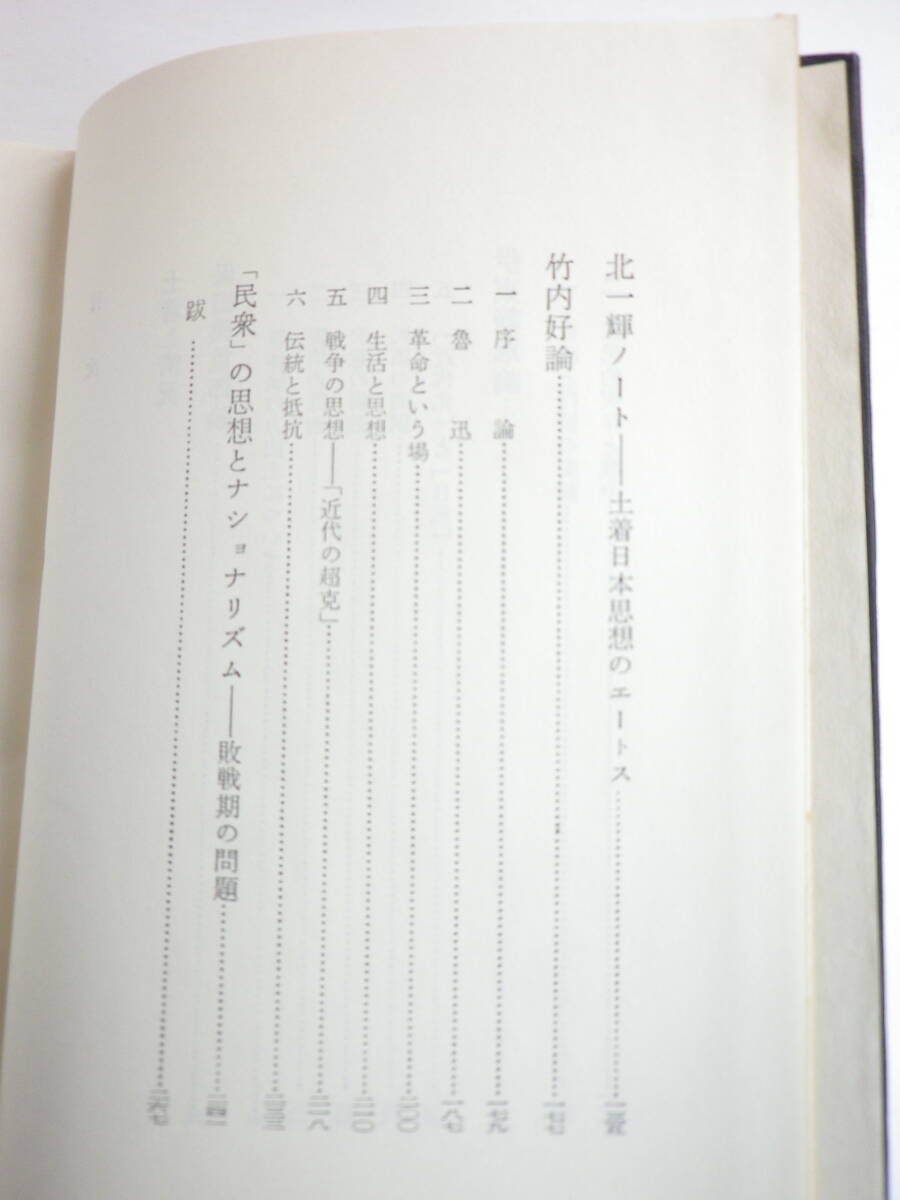 北一輝ノート――土着日本思想のエートス
竹内好論……一七七
一 序 論……一七九
二 魯 迅……一八七
三 革命という場……二〇〇
四 生活と思想……二一〇
五 戦争の思想――「近代の超克」……二一八
六 伝統と抵抗……二三三
「民衆」の思想とナショナリズム――敗戦期の問題……二四一
跋……二六七